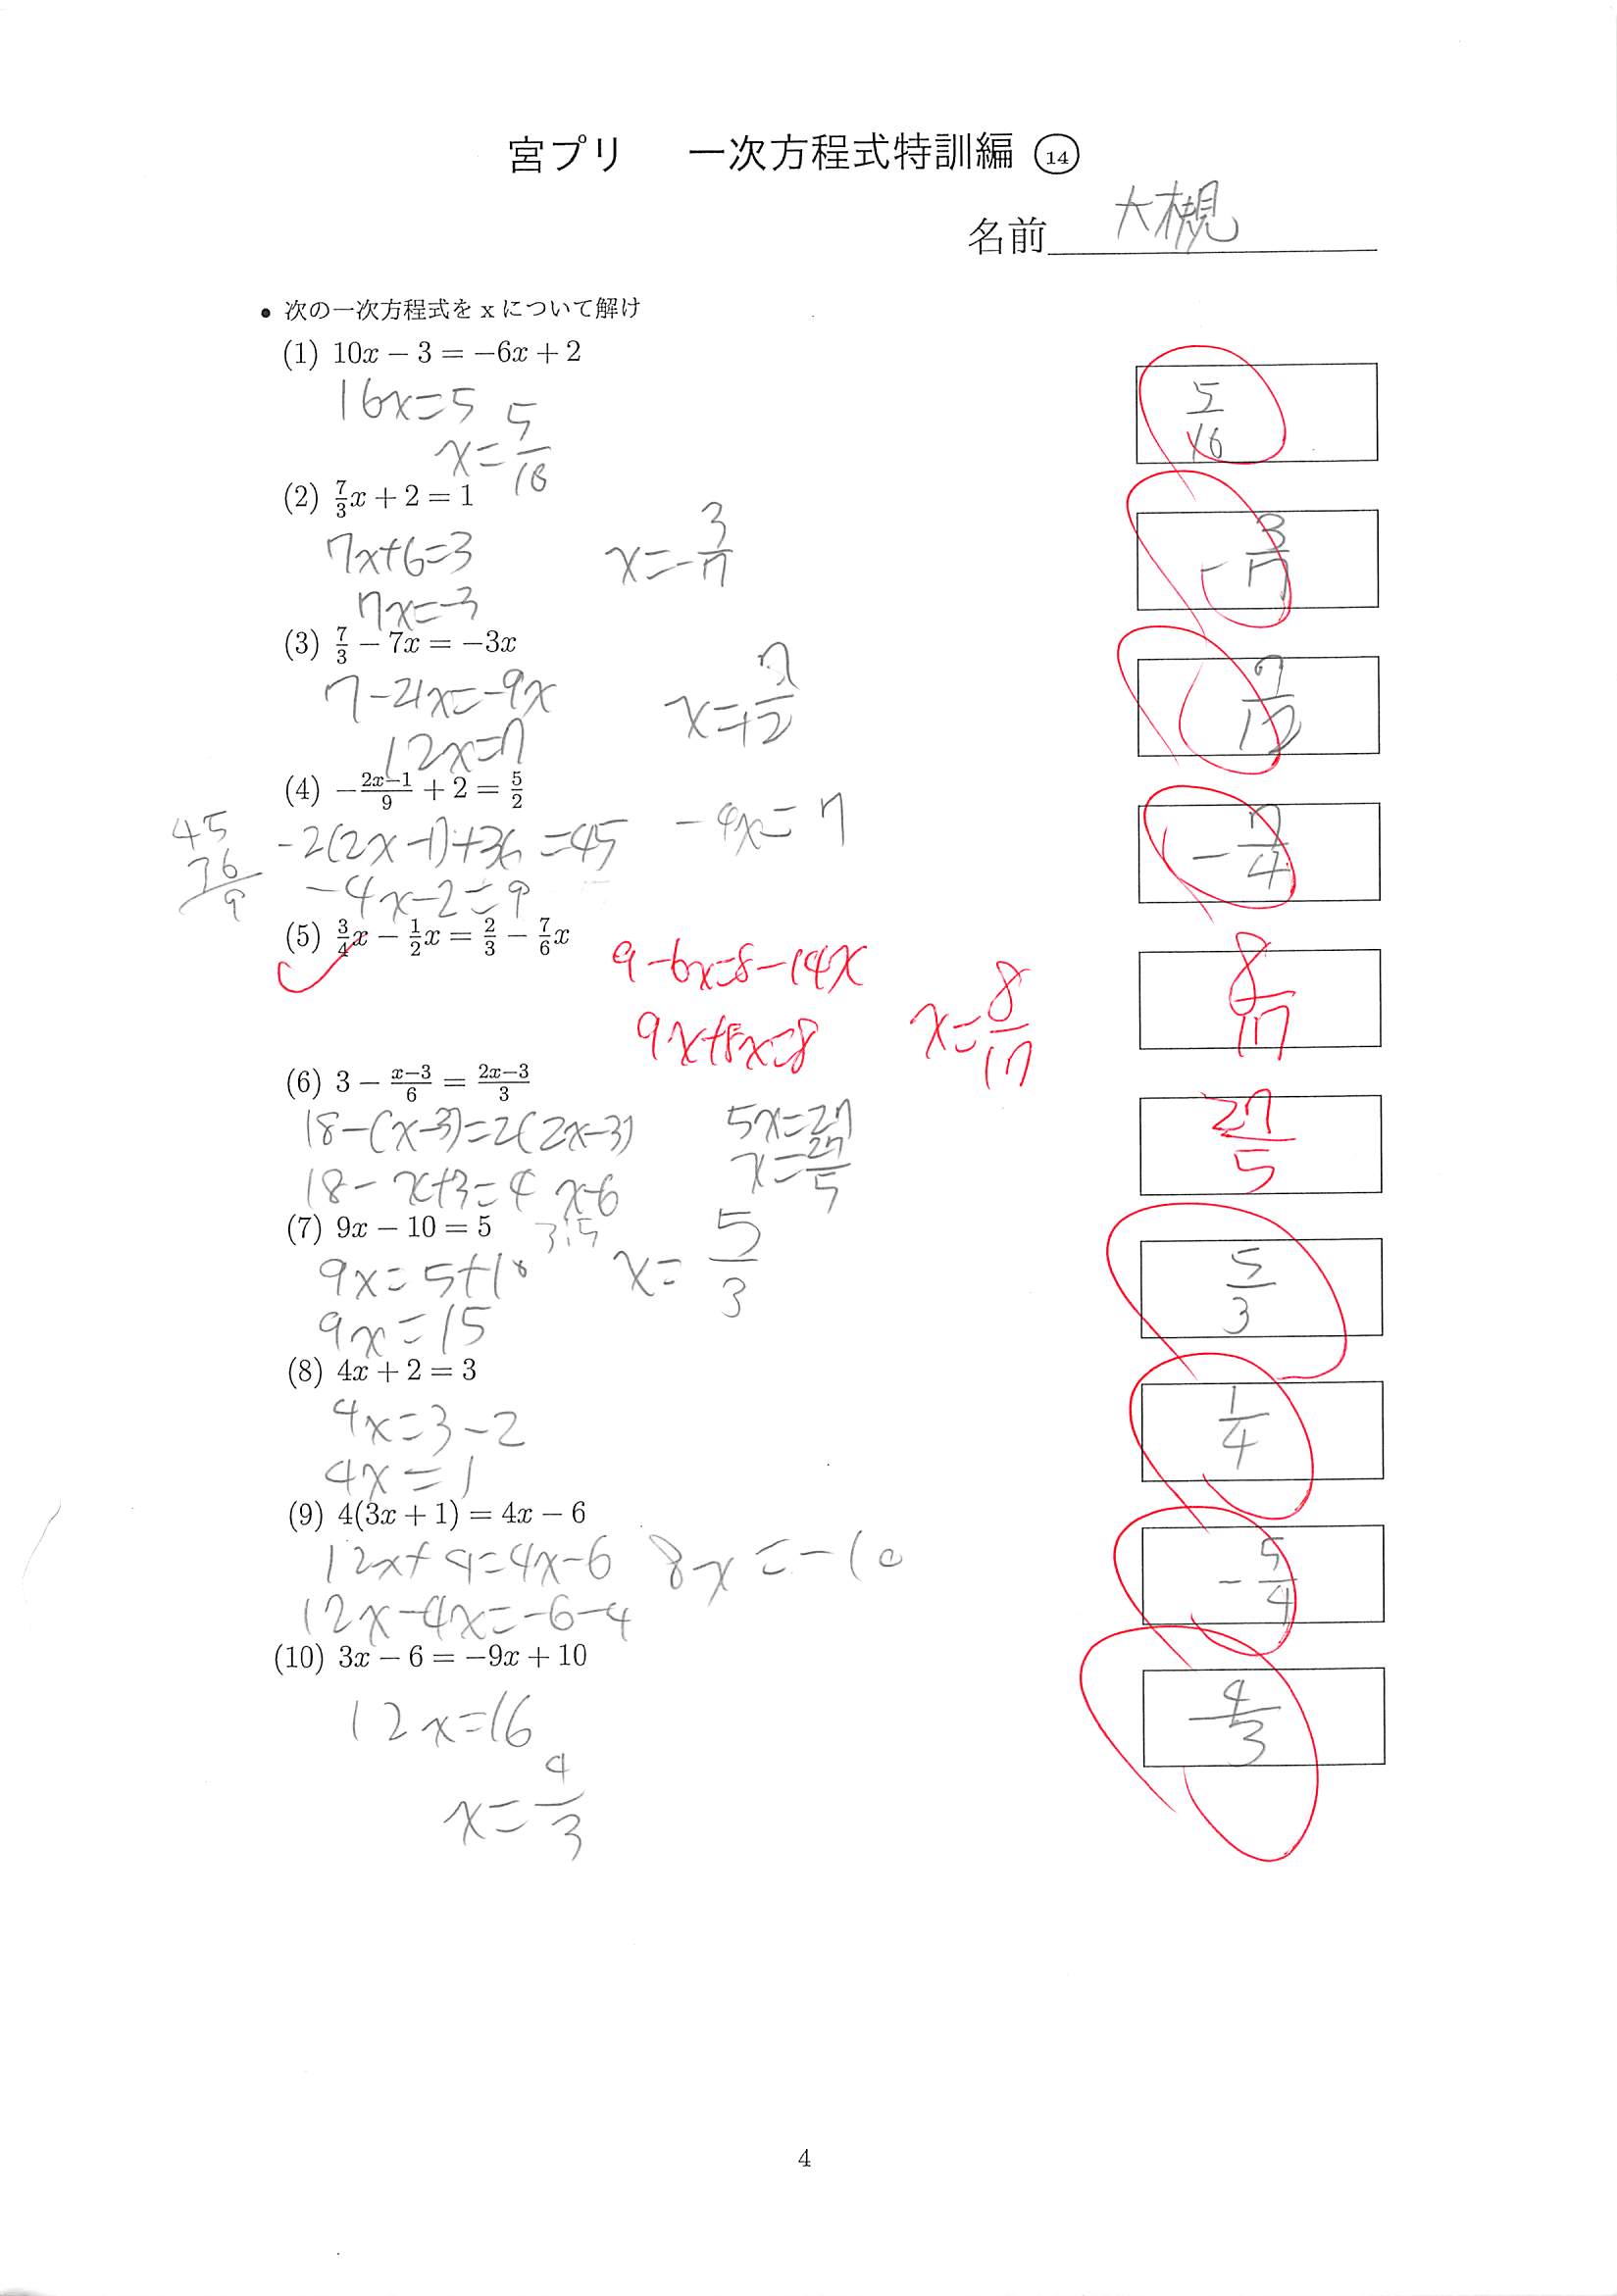 宮プリ 一次方程式特訓編 ⑭
名前 大槻
• 次の一次方程式を x について解け
(1) 10x − 3 = −6x + 2
16x=5
x=5/16
5/16
(2) 7/3 x + 2 = 1
7x+6=3
7x=-3
x=-3/7
-3/7
(3) 7/3 − 7x = −3x
7-21x=-9x
12x=7
x=7/12
7/12
(4) −(2x−1)/9 + 2 = 5/2
45
36
9
-2(2x-1)+36=45
-4x-2=9
-4x=7
-7/4
(5) 3/4 x − 1/2 x = 2/3 − 7/6 x
9-6x=8-14x
9x+8x=8
x=8/17
8/17
(6) 3 − (x−3)/6 = (2x−3)/3
18-(x-3)=2(2x-3)
18-x+3=4x-6
5x=27
x=27/5
27/5
(7) 9x − 10 = 5
9x=5+10
9x=15
3:5
x=5/3
5/3
(8) 4x + 2 = 3
4x=3-2
4x=1
1/4
(9) 4(3x + 1) = 4x − 6
12x+4=4x-6
12x-4x=-6-4
8x=-10
-5/4
(10) 3x − 6 = −9x + 10
12x=16
x=4/3
4/3
4